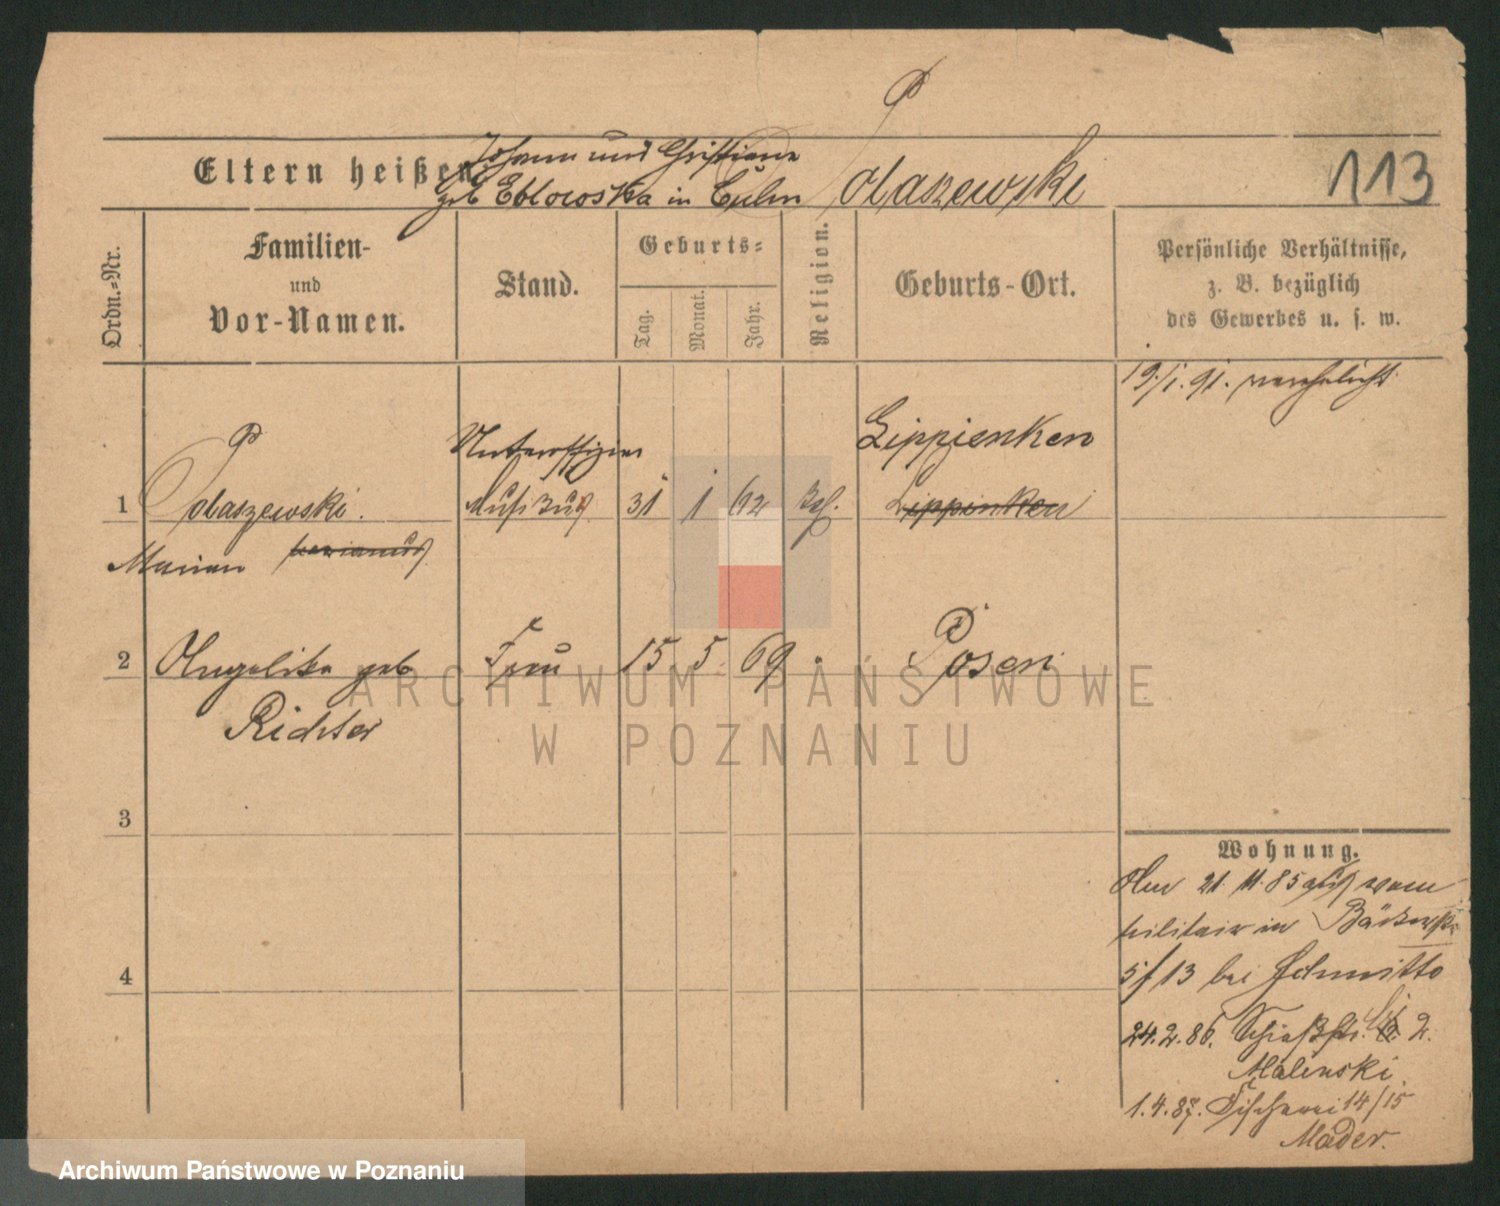 P
Eltern heißen:
Johann und Christiane
geb in Culm
Polaszewski
113
Ordn.=Nr.
Familien-
und
Vor-Namen.
Stand.
Geburts=
Tag.
Monat.
Jahr.
Religion.
Geburts-Ort.
Persönliche Verhältnisse,
z. B. bezüglich
des Gewerbes u. s. w.
19./1. 91. verehelicht
Unteroffizier
Lippienken
1 Polaszewski. 31 1 62 Lippinken
Marian
2 Angelika geb Frau 15 5 69 Posen
Richter
3
4
Wohnung.
Am 21. 11. 85 aus vom
Militair in Bäckerstr
5/13 bei
24. 2. 86. Schießstr. 2.
Malinski
1. 4. 87. Fischerei 14/15
Mader.
ARCHIWUM PAŃSTWOWE
W POZNANIU
Archiwum Państwowe w Poznaniu